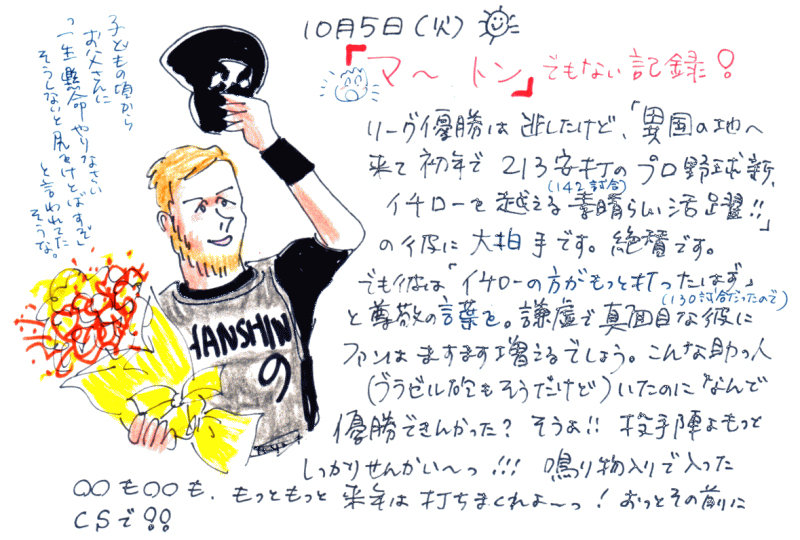 10月5日(火)
「マ〜トン」でもない記録!
リーグ優勝は逃したけど、「異国の地へ
来て初年で213安打のプロ野球新、
(142試合)
イチローを越える素晴らしい活躍!!」
の彼に大拍手です。絶賛です。
でも彼は「イチローの方がもっと打ったはず」
(130試合だったので)
と尊敬の言葉を。謙虚で真面目な彼に
ファンはますます増えるでしょう。こんな助っ人
(ブラゼル砲もそうだけど)いたのになんで
優勝できんかった? そうよ!! 投手陣よもっと
しっかりせんかい〜っ!!! 鳴り物入りで入った
○○も○○も、もっともっと来年は打ちまくれよ〜っ!おっとその前に
CSで!!
子どもの頃から
お父さんに
「一生懸命やりなさい
そうしないと尻をけとばすぞ」
と言われてた
そうな。
HANSHIN
9